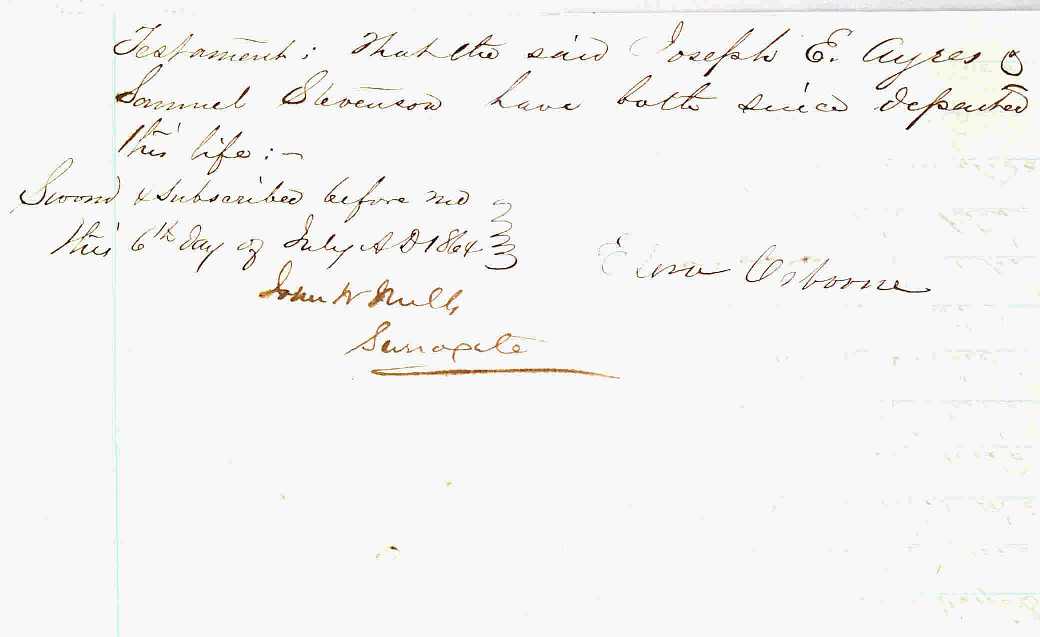 Testament; That the said Joseph E. Ayres &
Samuel Stevenson have both since departed
this life:—
Sworn & subscribed before me
this 6th day of July A D 1864
Osborne
John W Mills
Surrogate